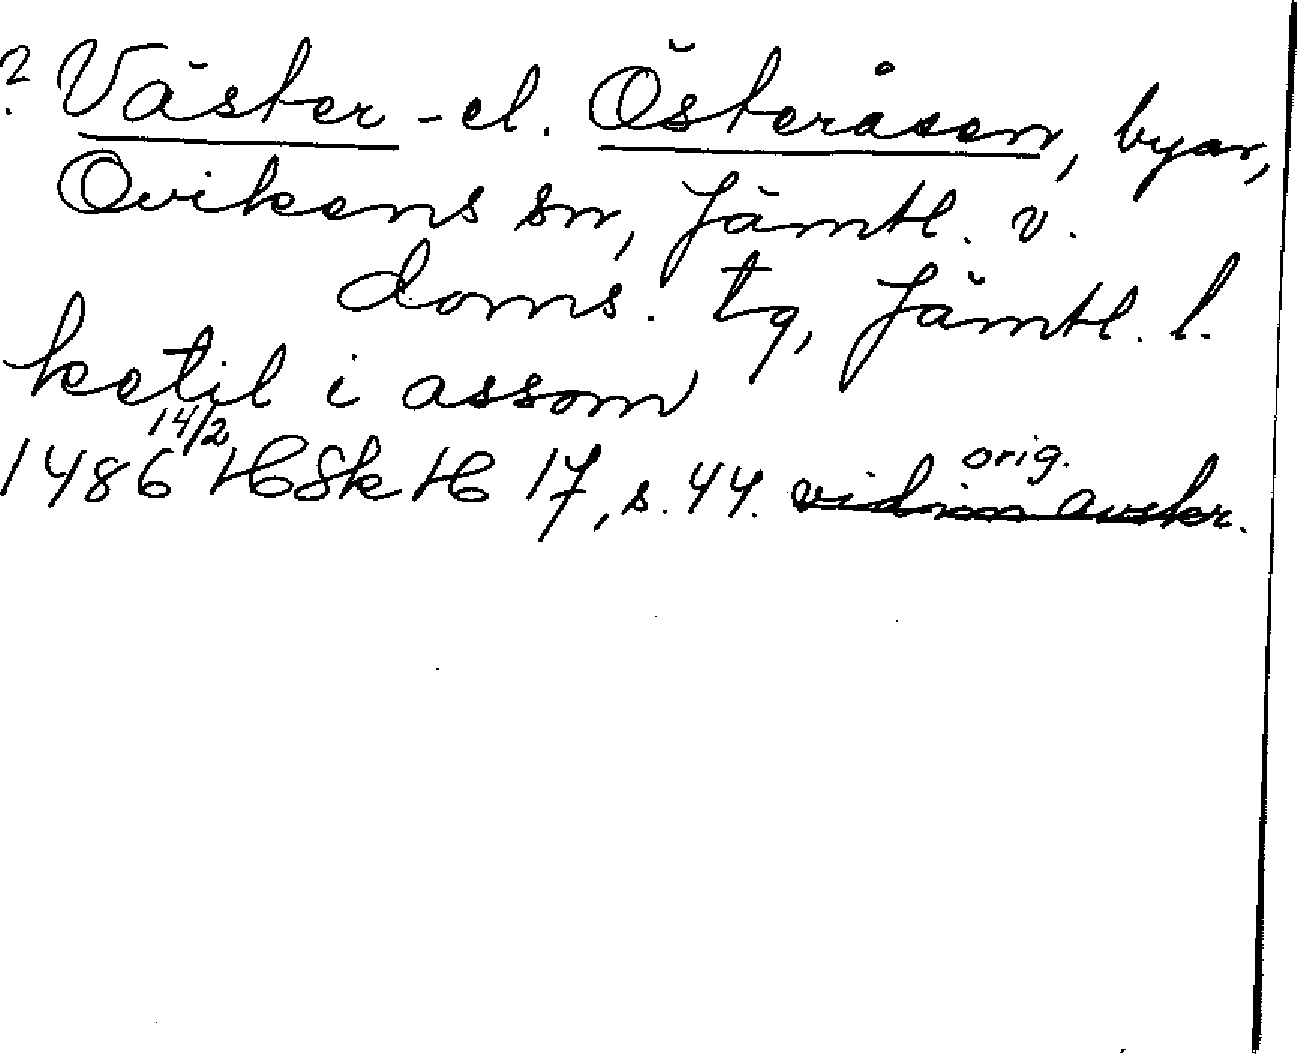 ? Väster- el. Österåsen, byar,
Ovikens sn, Jämtl. v.
doms. tg, Jämtl. l.
ketil i assom
1486 14/2 HSkH 17, s. 44. orig. vidim avskr.